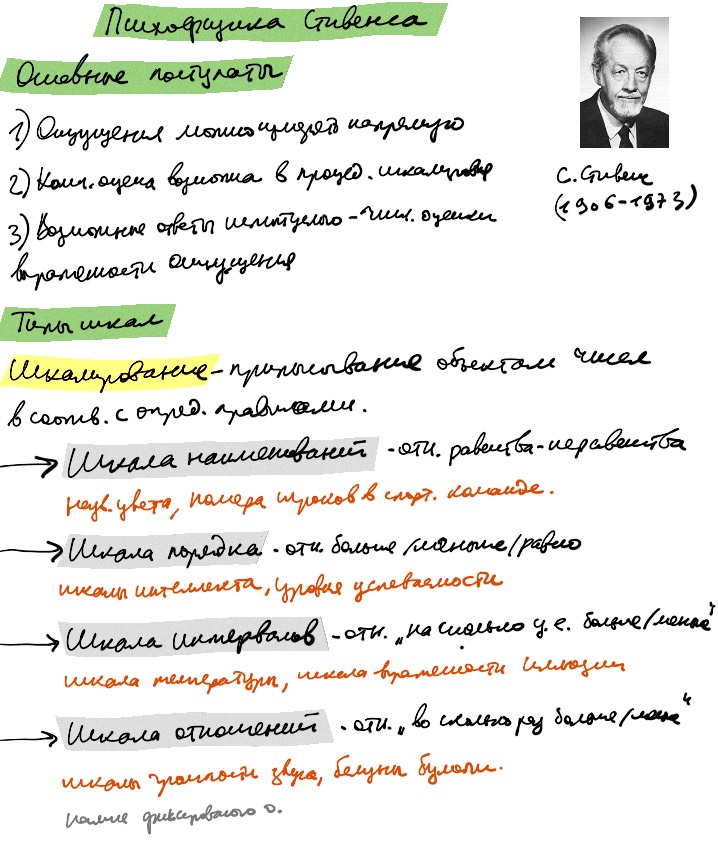 Психофизика Стивенса
Основные постулаты
1) Ощущения можно измерять напрямую
2) Колич. оценка возможна в процед. шкалирования
С. Стивенс
(1906-1973)
3) Возможные ответы испытуемого - числ. оценки
выраженности ощущения
Типы шкал
Шкалирование - приписывание объектам чисел
в соотв. с опред. правилами.
→ Шкала наименований - отн. равенства-неравенства
назв. цвета, номера игроков в спорт. команде.
→ Шкала порядка - отн. больше/меньше/равно
шкалы интеллекта, уровня успеваемости
→ Шкала интервалов - отн. „на сколько у.е. больше/меньше"
шкала температуры, шкала выраженности иллюзии
→ Шкала отношений - отн. „во сколько раз больше/меньше"
шкалы громкости звука, белизны бумаги.
наличие фиксированого 0.